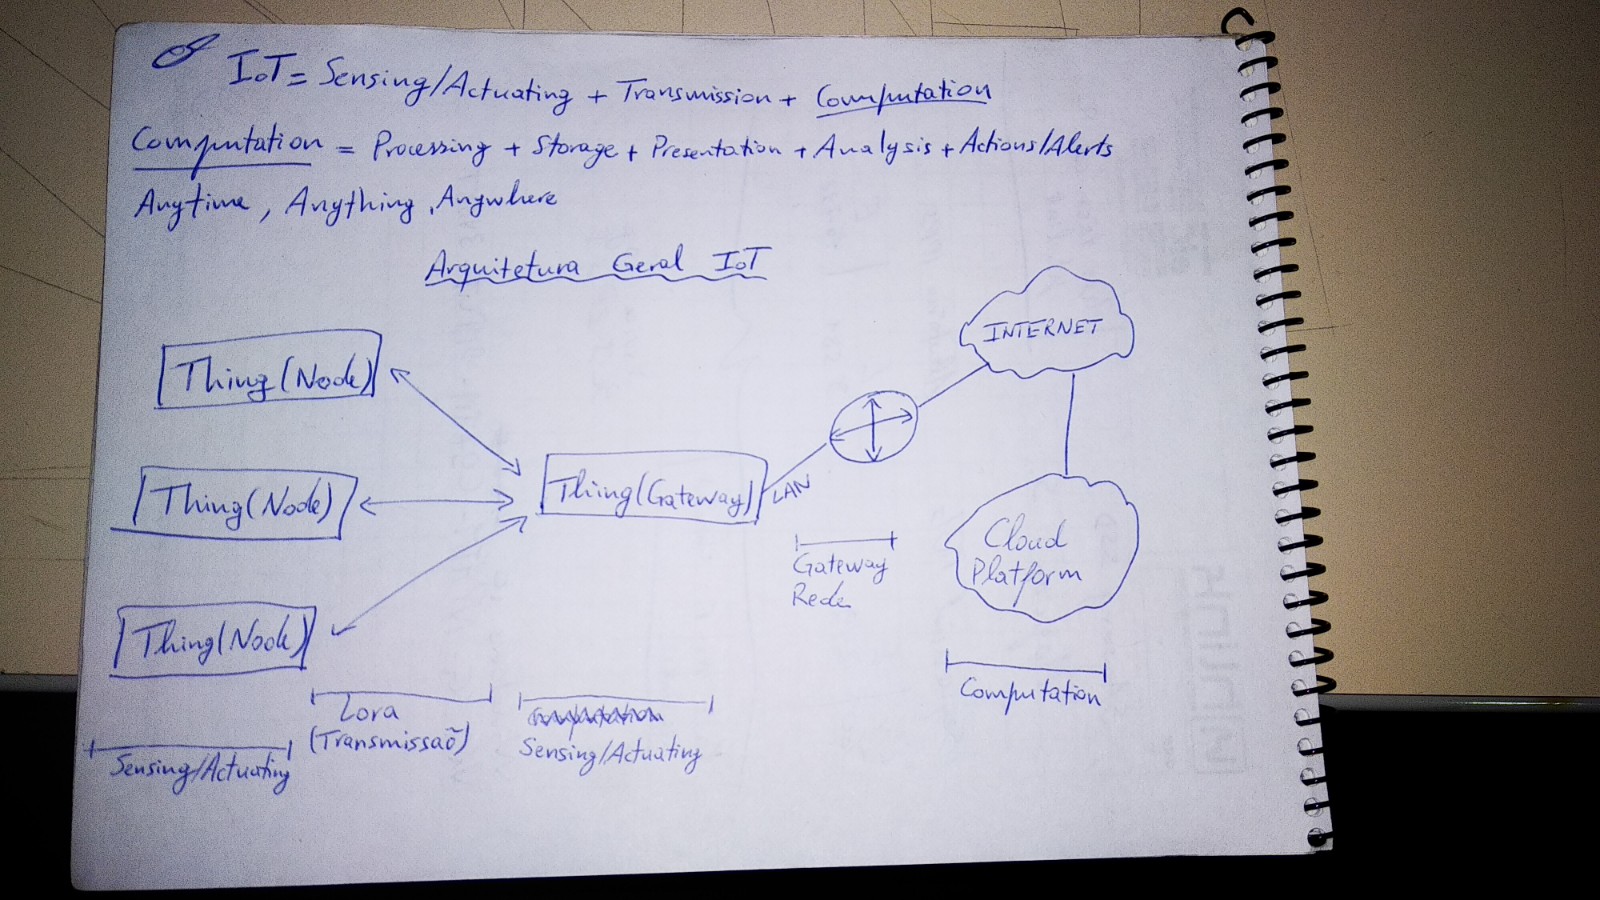 IoT = Sensing/Actuating + Transmission + Computation
Computation = Processing + Storage + Presentation + Analysis + Actions/Alerts
Anytime, Anything, Anywhere
Arquitetura Geral IoT
INTERNET
Thing (Node)
Thing (Node)
Thing (Gateway)
LAN
Cloud
Platform
Gateway
Rede
Thing (Node)
Computation
Lora
(Transmissaõ)
Sensing/Actuating
Sensing/Actuating